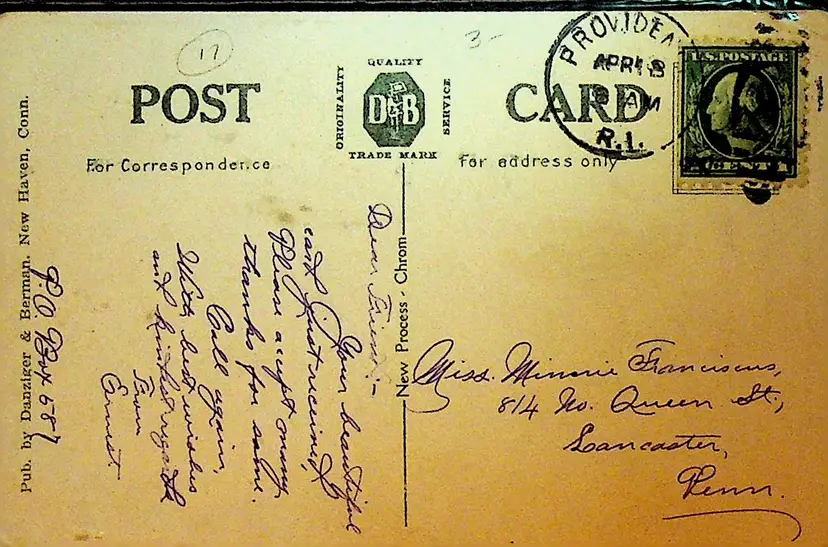 17
3-
POST
CARD
For Correspondence
For address only
QUALITY
ORIGINALITY
D&B
SERVICE
TRADE MARK
PROVIDEN
APR 18
AM
R.I.
U.S. POSTAGE
CENT
Pub. by Danziger & Berman, New Haven, Conn.
New Process - Chrom
P.O. Box 587
Dear Friend:-
Your beautiful
card just received,
Please accept many
thanks for same.
Call again,
With best wishes
and kindest regards
From
Ernest.
Miss. Minnie Franciscus,
814 No. Queen St.,
Lancaster,
Penn.